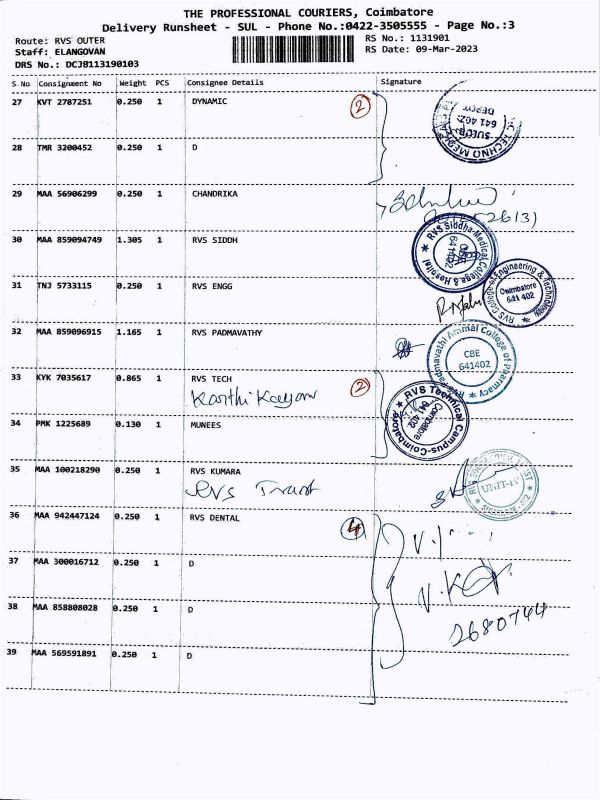 THE PROFESSIONAL COURIERS, Coimbatore
Delivery Runsheet - SUL - Phone No.:0422-3505555 - Page No.:3
Route: RVS OUTER
RS No.: 1131901
Staff: ELANGOVAN
RS Date: 09-Mar-2023
DRS No.: DCJB113190103
S No Consignment No Weight PCS Consignee Details Signature
27 KVT 2787251 0.250 1 DYNAMIC 2
641 402
28 TMR 3200452 0.250 1 D
29 MAA 56906299 0.250 1 CHANDRIKA
30 MAA 859094749 1.305 1 RVS SIDDH
RVS Siddha Medical College & Hospital
641402
31 TNJ 5733115 0.250 1 RVS ENGG
RVS College of Engineering & Technology
Coimbatore
641 402
32 MAA 859096915 1.165 1 RVS PADMAVATHY
RVS Padmavathi Ammal College of Pharmacy
CBE
641402
33 KYK 7035617 0.865 1 RVS TECH 2
RVS Technical Campus-Coimbatore
Coimbatore
641 402
34 PMK 1225689 0.130 1 MUNEES
35 MAA 100218290 0.250 1 RVS KUMARA
RVS Trust
UNIT-IV
36 MAA 942447124 0.250 1 RVS DENTAL 4
37 MAA 300016712 0.250 1 D
38 MAA 858808028 0.250 1 D
2680744
39 MAA 569591891 0.250 1 D